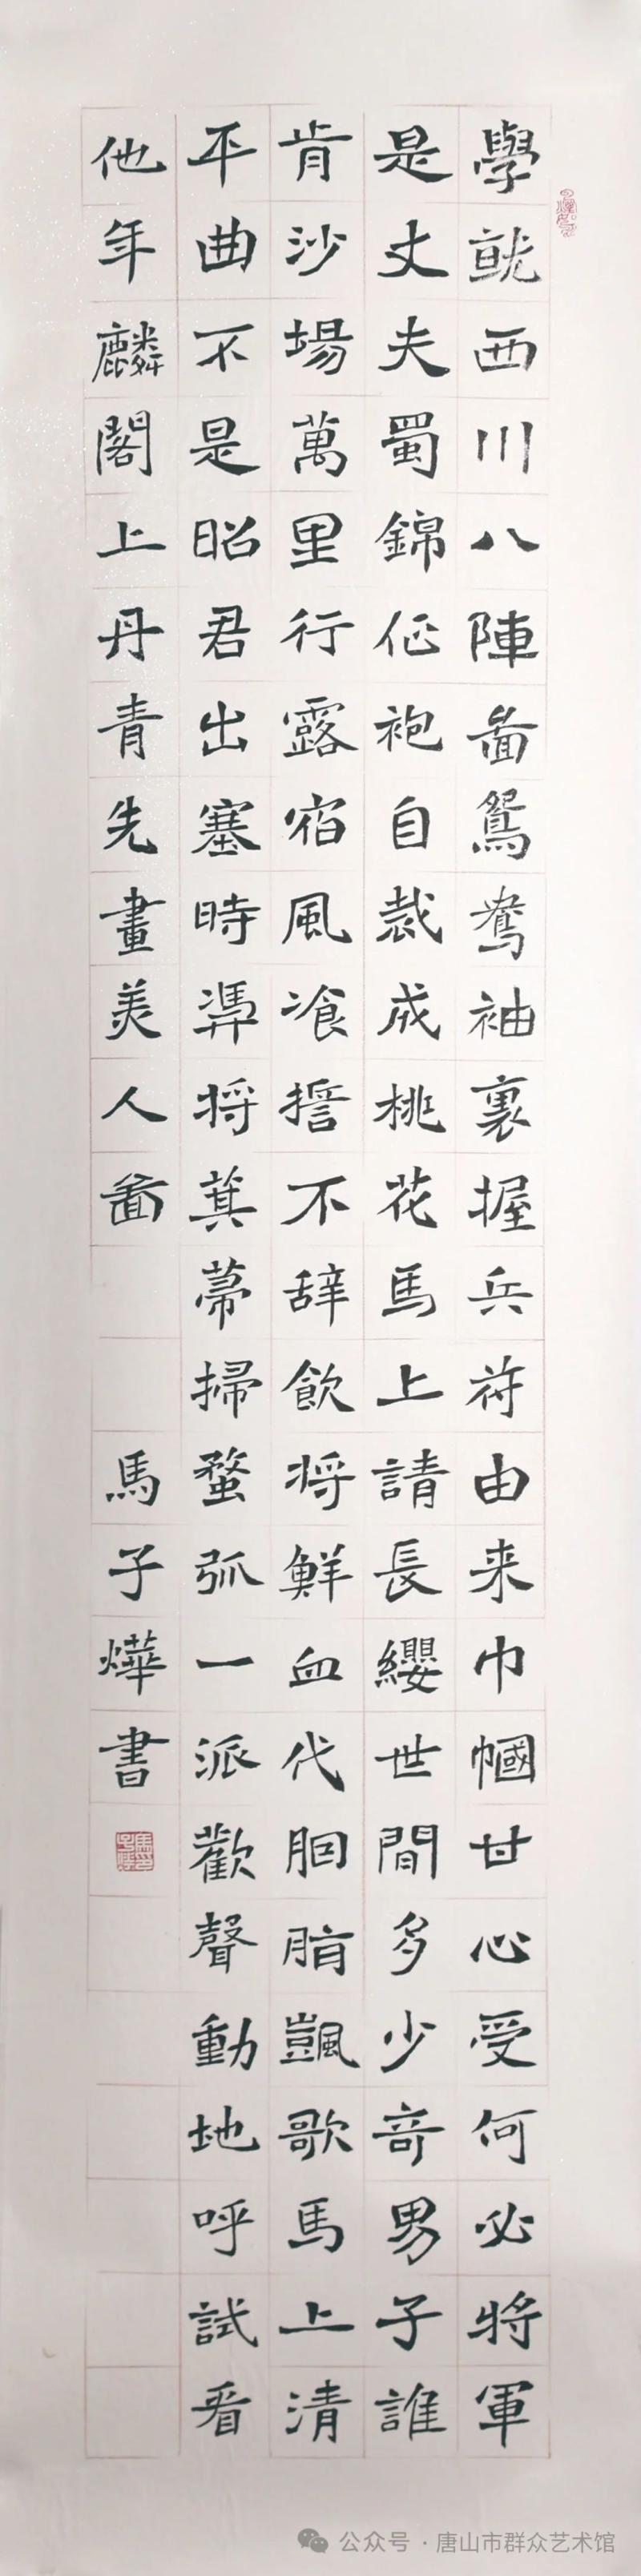 學就西川八陣啚鴛鴦袖裏握兵符由来巾幗甘心受何必將軍
是丈夫蜀錦征袍自裁成桃花馬上請長纓世間多少奇男子誰
肯沙場萬里行露宿風飡誓不辞飲将鮮血代胭脂凱歌馬上清
平曲不是昭君出塞時憑将箕帚掃蝥弧一派歡聲動地呼試看
他年麟閣上丹青先畫美人啚
馬子燁書
公众号·唐山市群众艺术馆